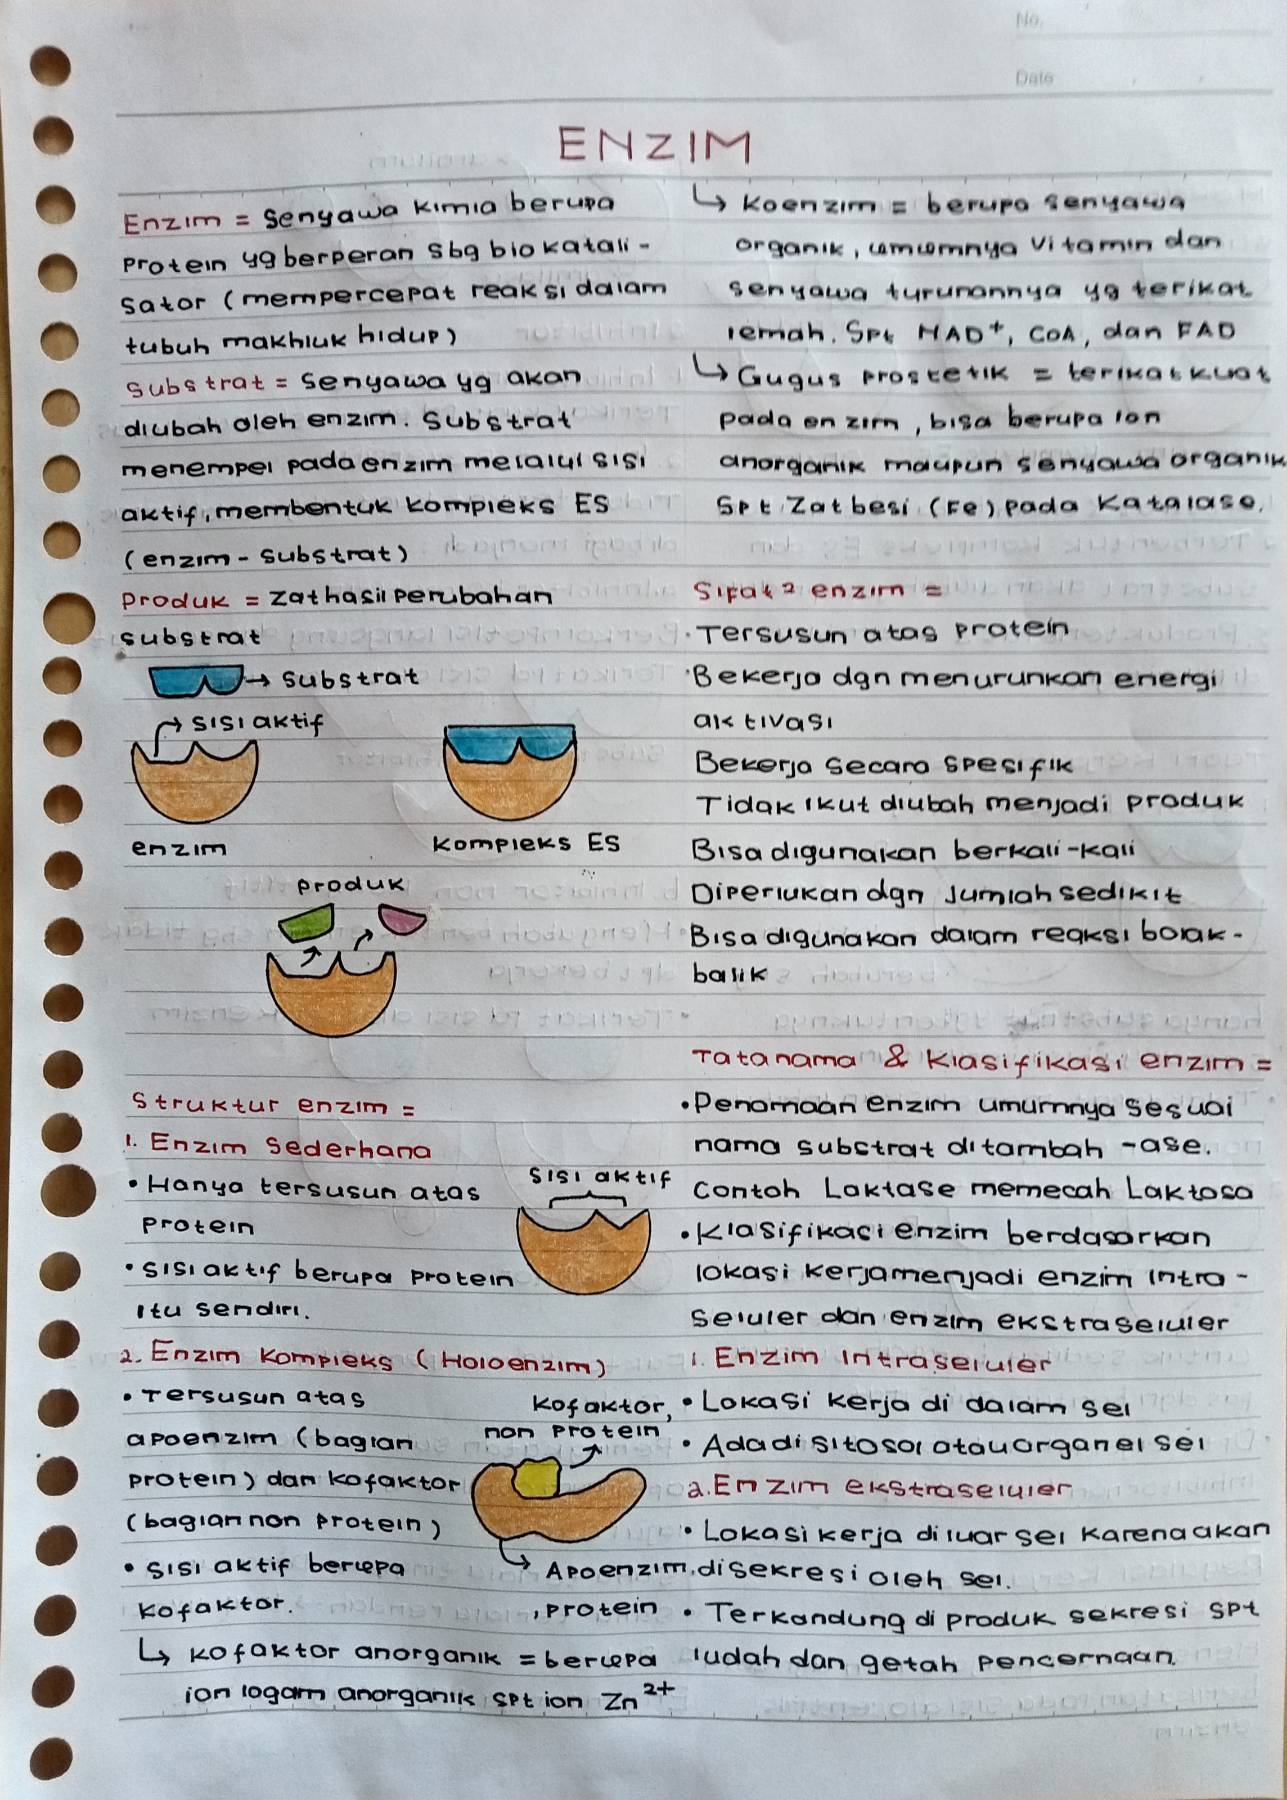 No.
Date
ENZIM
Enzim = Senyawa kimia berupa
Protein yg berperan sbg biokatali-
sator (mempercepat reaksi dalam
tubuh makhluk hidup)
Substrat = Senyawa yg akan
diubah oleh enzim. Substrat
menempel pada enzim melalui sisi
aktif, membentuk kompleks ES
(enzim - substrat)
Produk = Zat hasil perubahan
substrat
→ substrat
→ sisi aktif
enzim
Kompleks ES
produk
Struktur enzim =
1. Enzim Sederhana
• Hanya tersusun atas
protein
• sisi aktif berupa protein
itu sendiri.
sisi aktif
2. Enzim Kompleks (Holoenzim)
• Tersusun atas
apoenzim (bagian
protein) dan kofaktor
(bagian non protein)
• sisi aktif berupa
kofaktor.
kofaktor,
non protein
Apoenzim
, protein
↳ kofaktor anorganik = berupa
ion logam anorganik spt ion Zn²⁺
↳ Koenzim = berupa senyawa
organik, umumnya vitamin dan
senyawa turunannya yg terikat
lemah. Spt NAD⁺, CoA, dan FAD
↳ Gugus prostetik = terikat kuat
pada enzim, bisa berupa ion
anorganik maupun senyawa organik
Spt Zat besi (Fe) pada Katalase.
Sifat² enzim =
• Tersusun atas protein
• Bekerja dgn menurunkan energi
aktivasi
Bekerja secara spesifik
Tidak ikut diubah menjadi produk
Bisa digunakan berkali-kali
Diperlukan dgn jumlah sedikit
Bisa digunakan dalam reaksi bolak-
balik
Tatanama & Klasifikasi enzim =
• Penamaan enzim umumnya sesuai
nama substrat ditambah -ase.
Contoh Laktase memecah Laktosa
• Klasifikasi enzim berdasarkan
lokasi kerja menjadi enzim intra-
seluler dan enzim ekstraseluler
1. Enzim Intraseluler
• Lokasi kerja di dalam sel
• Ada di sitosol atau organel sel
2. Enzim ekstraseluler
• Lokasi kerja di luar sel karena akan
disekresi oleh sel.
• Terkandung di produk sekresi spt
ludah dan getah pencernaan.